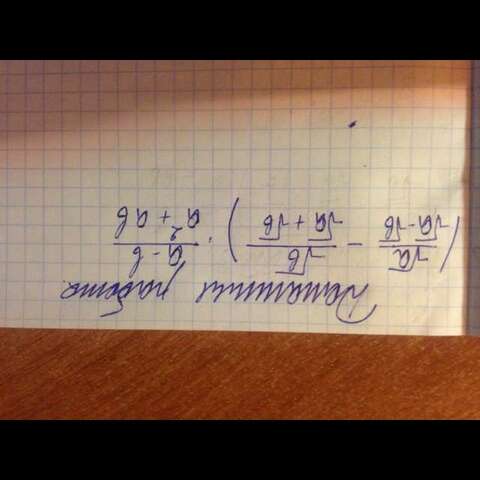 Домашняя работа
(√a / (√a - √b) - √b / (√a + √b)) · (a - b) / (a² + ab)